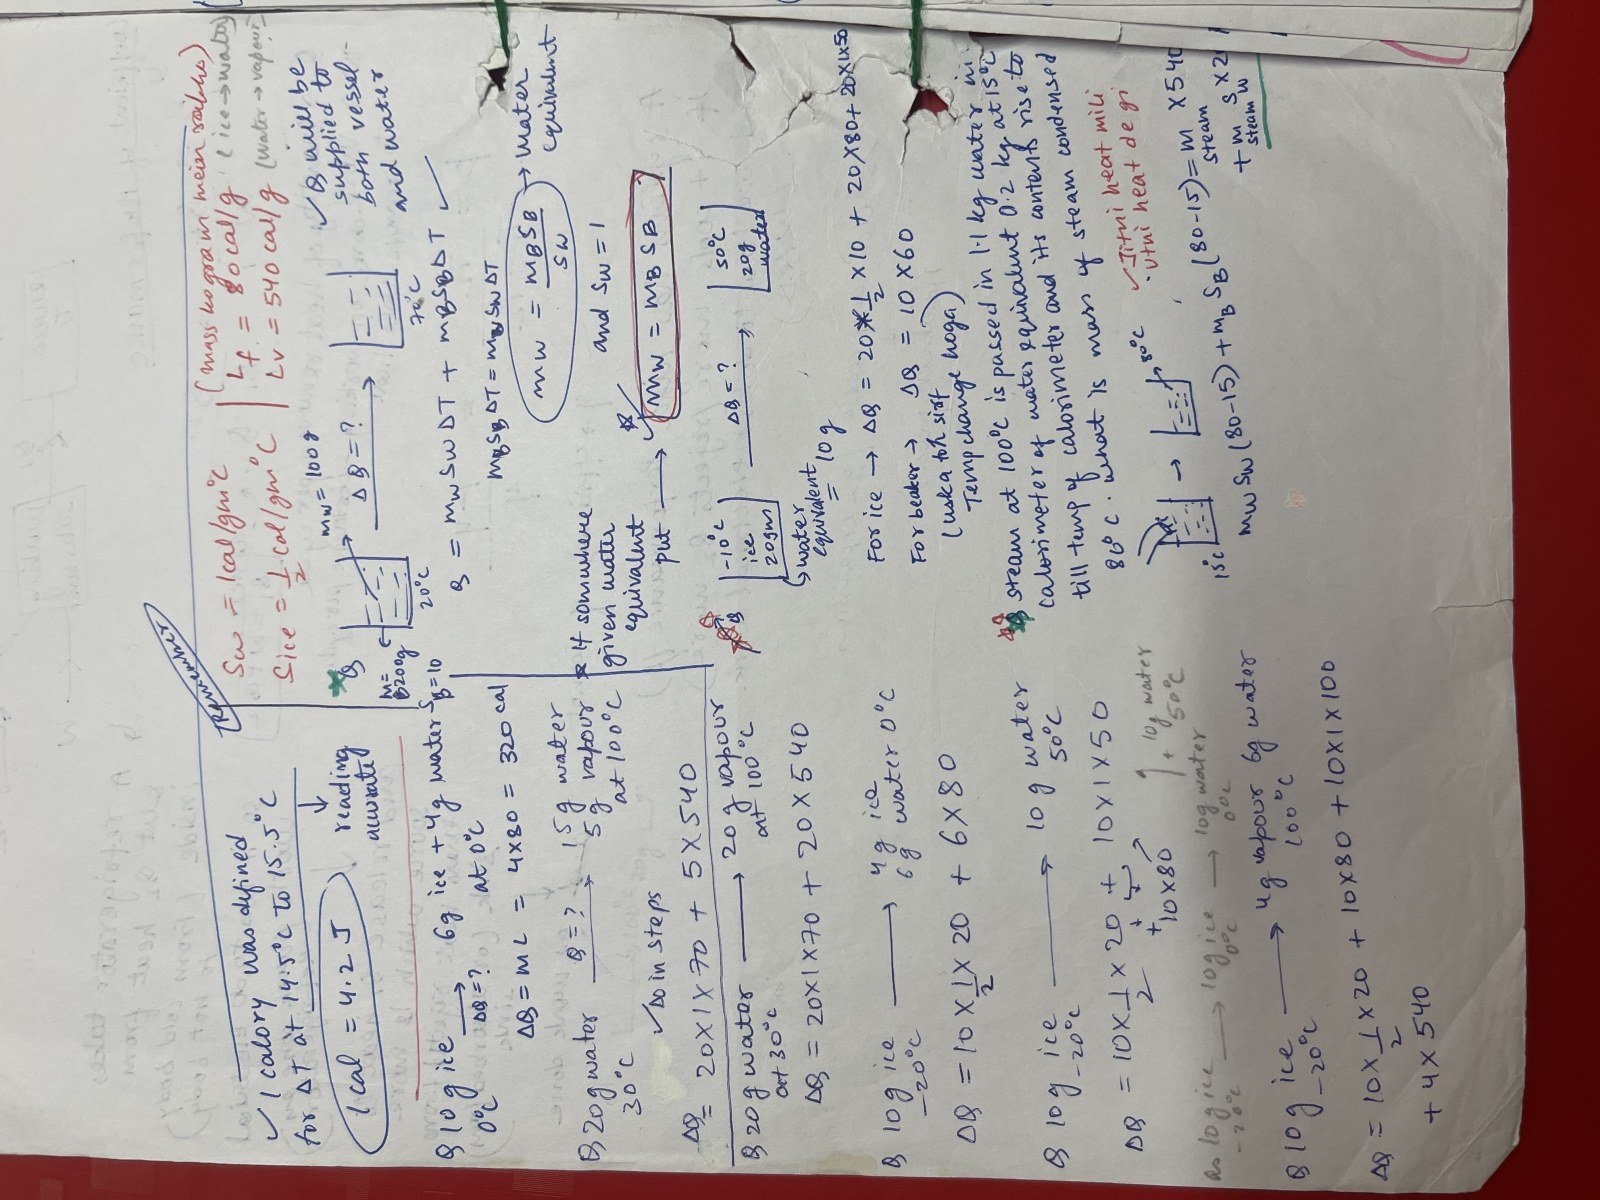 ✓ 1 calory was defined
for ΔT at 14.5°C to 15.5°C
1 cal = 4.2 J
↓
reading
accurate
Q 10g ice → 6g ice + 4g water
0°C ΔQ=? at 0°C
ΔQ = mL = 4×80 = 320 cal
Q 20g water Q=? → 15g water
30°C 5g vapour
at 100°C
✓ Do in steps
ΔQ = 20×1×70 + 5×540
Q 20g water → 20g vapour
at 30°C at 100°C
ΔQ = 20×1×70 + 20×540
Q 10g ice → 4g ice
-20°C 6g water 0°C
ΔQ = 10×1/2×20 + 6×80
Q 10g ice → 10g water
-20°C 50°C
ΔQ = 10×1/2×20 + 10×1×50
+ 10×80
as 10g ice → 10g ice → 10g water → 10g water
-20°C 0°C 0°C 50°C
Q 10g ice → 4g vapour 6g water
-20°C 100°C
ΔQ = 10×1/2×20 + 10×80 + 10×1×100
+ 4×540
Remember
Sw = 1cal/gm°C
Sice = 1/2 cal/gm°C
(mass hogram mein rakho)
Lf = 80 cal/g (ice→water)
Lv = 540 cal/g (water→vapour)
Q mw = 100g
ΔQ = ?
20°C 70°C
MB = 200g
SB = 10
✓ Q will be
supplied to
both vessel
and water
Q = mw Sw ΔT + mB SB ΔT ✓
mB SB ΔT = mw Sw ΔT
mw = mB SB / Sw → water
equivalent
* If somwhere
given water
equivalent
put →
and Sw = 1
mw = mB SB
Q -10°C
ice
20gm
ΔQ = ?
50°C
20g
water
↳ water
equivalent = 10g
For ice → ΔQ = 20×1/2×10 + 20×80 + 20×1×50
For beaker → ΔQ = 10×60
(uska toh sirf
Temp change hoga)
Q steam at 100°C is passed in 1.1 kg water in
calorimeter of water equivalent 0.2 kg at 15°C
till temp of calorimeter and its contents rise to
80°C. what is mass of steam condensed
✓ Jitni heat mili
utni heat degi
15°C → 80°C
mw Sw (80-15) + mB SB (80-15) = m steam × 540
+ m steam Sw × 20